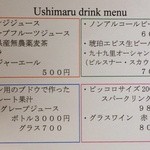 Ushimaru drink menu
ジジュース
プフルーツジュース
県産無農薬麦茶
ジャーエール
500円
ン用のブドウで作った
ート果汁
グレープジュース
ボトル3000円
グラス700
・ノンアルコールビー
6
・琥珀ヱビス生ビール
・九十九里オーシャン
(ピルスナー・スカウ
・ピッコロサイズ20
スパークリン
9
・グラスワイン 赤